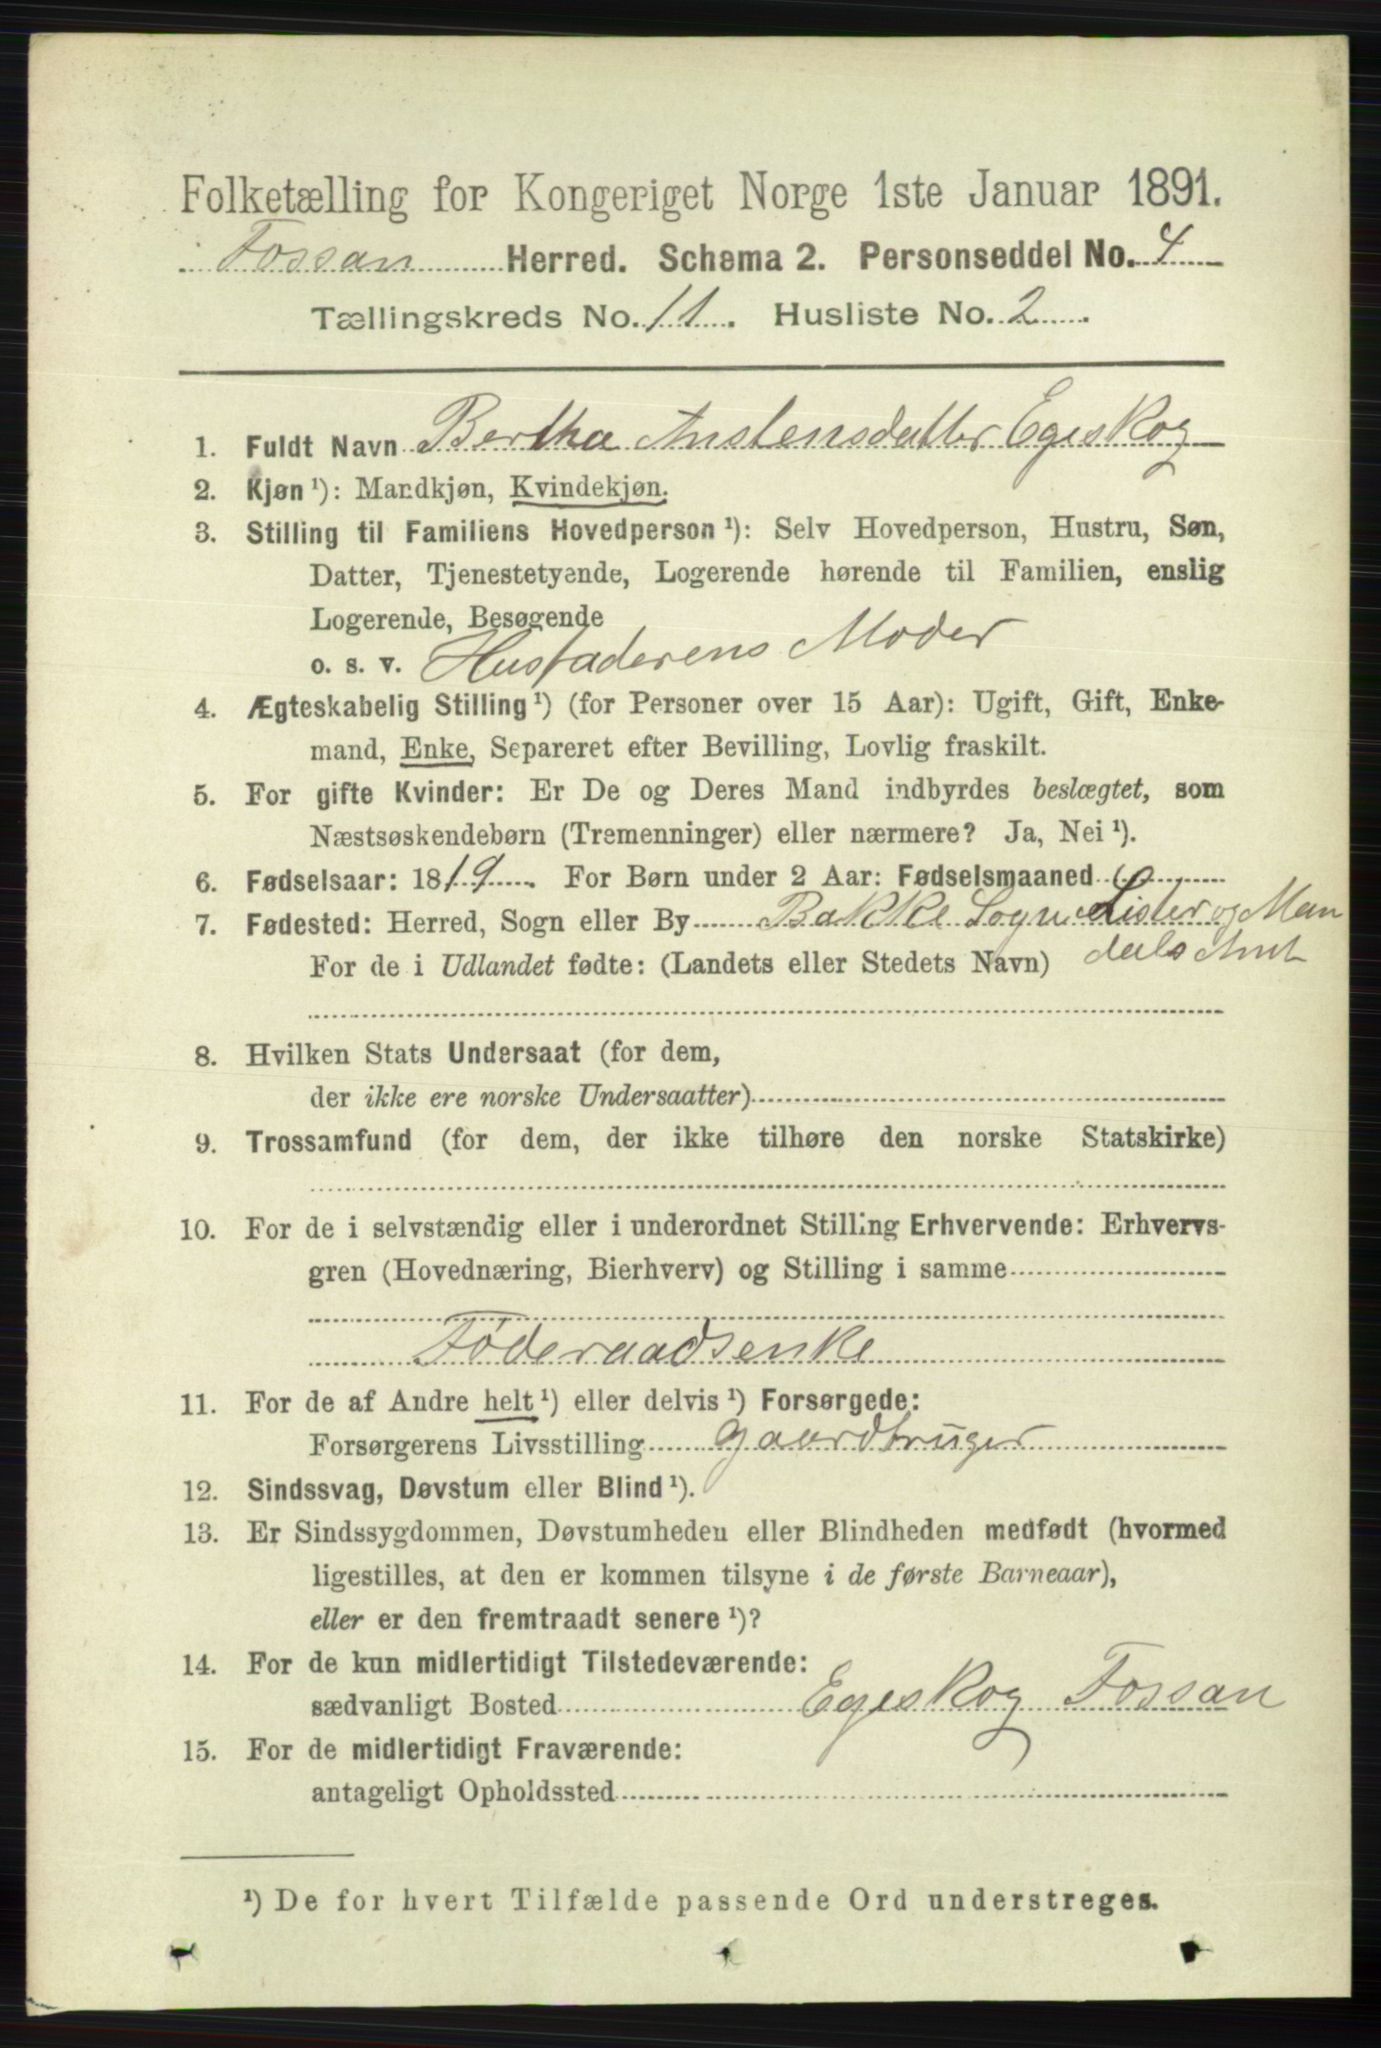 Folketælling for Kongeriget Norge 1ste Januar 1891.
Fossan Herred. Schema 2. Personseddel No. 4
Tællingskreds No. 11. Husliste No. 2.
1. Fuldt Navn Bertha Anstensdatter Egeskog
2. Kjøn ¹): Mandkjøn, Kvindekjøn.
3. Stilling til Familiens Hovedperson ¹): Selv Hovedperson, Hustru, Søn,
Datter, Tjenestetyende, Logerende hørende til Familien, enslig
Logerende, Besøgende
o. s. v. Husfaderens Moder
4. Ægteskabelig Stilling ¹) (for Personer over 15 Aar): Ugift, Gift, Enke-
mand, Enke, Separeret efter Bevilling, Lovlig fraskilt.
5. For gifte Kvinder: Er De og Deres Mand indbyrdes beslægtet, som
Næstsøskendebørn (Tremenninger) eller nærmere? Ja, Nei ¹).
6. Fødselsaar: 1819. For Børn under 2 Aar: Fødselsmaaned
7. Fødested: Herred, Sogn eller By Bakke Sogn Lister og Man
For de i Udlandet fødte: (Landets eller Stedets Navn) dals Amt
8. Hvilken Stats Undersaat (for dem,
der ikke ere norske Undersaatter)
9. Trossamfund (for dem, der ikke tilhøre den norske Statskirke)
10. For de i selvstændig eller i underordnet Stilling Erhvervende: Erhvervs-
gren (Hovednæring, Bierhverv) og Stilling i samme
Føderaadsenke
11. For de af Andre helt ¹) eller delvis ¹) Forsørgede:
Forsørgerens Livsstilling gaardbruger
12. Sindssvag, Døvstum eller Blind ¹).
13. Er Sindssygdommen, Døvstumheden eller Blindheden medfødt (hvormed
ligestilles, at den er kommen tilsyne i de første Barneaar),
eller er den fremtraadt senere ¹)?
14. For de kun midlertidigt Tilstedeværende:
sædvanligt Bosted Egeskog Fossan
15. For de midlertidigt Fraværende:
antageligt Opholdssted
¹) De for hvert Tilfælde passende Ord understreges.